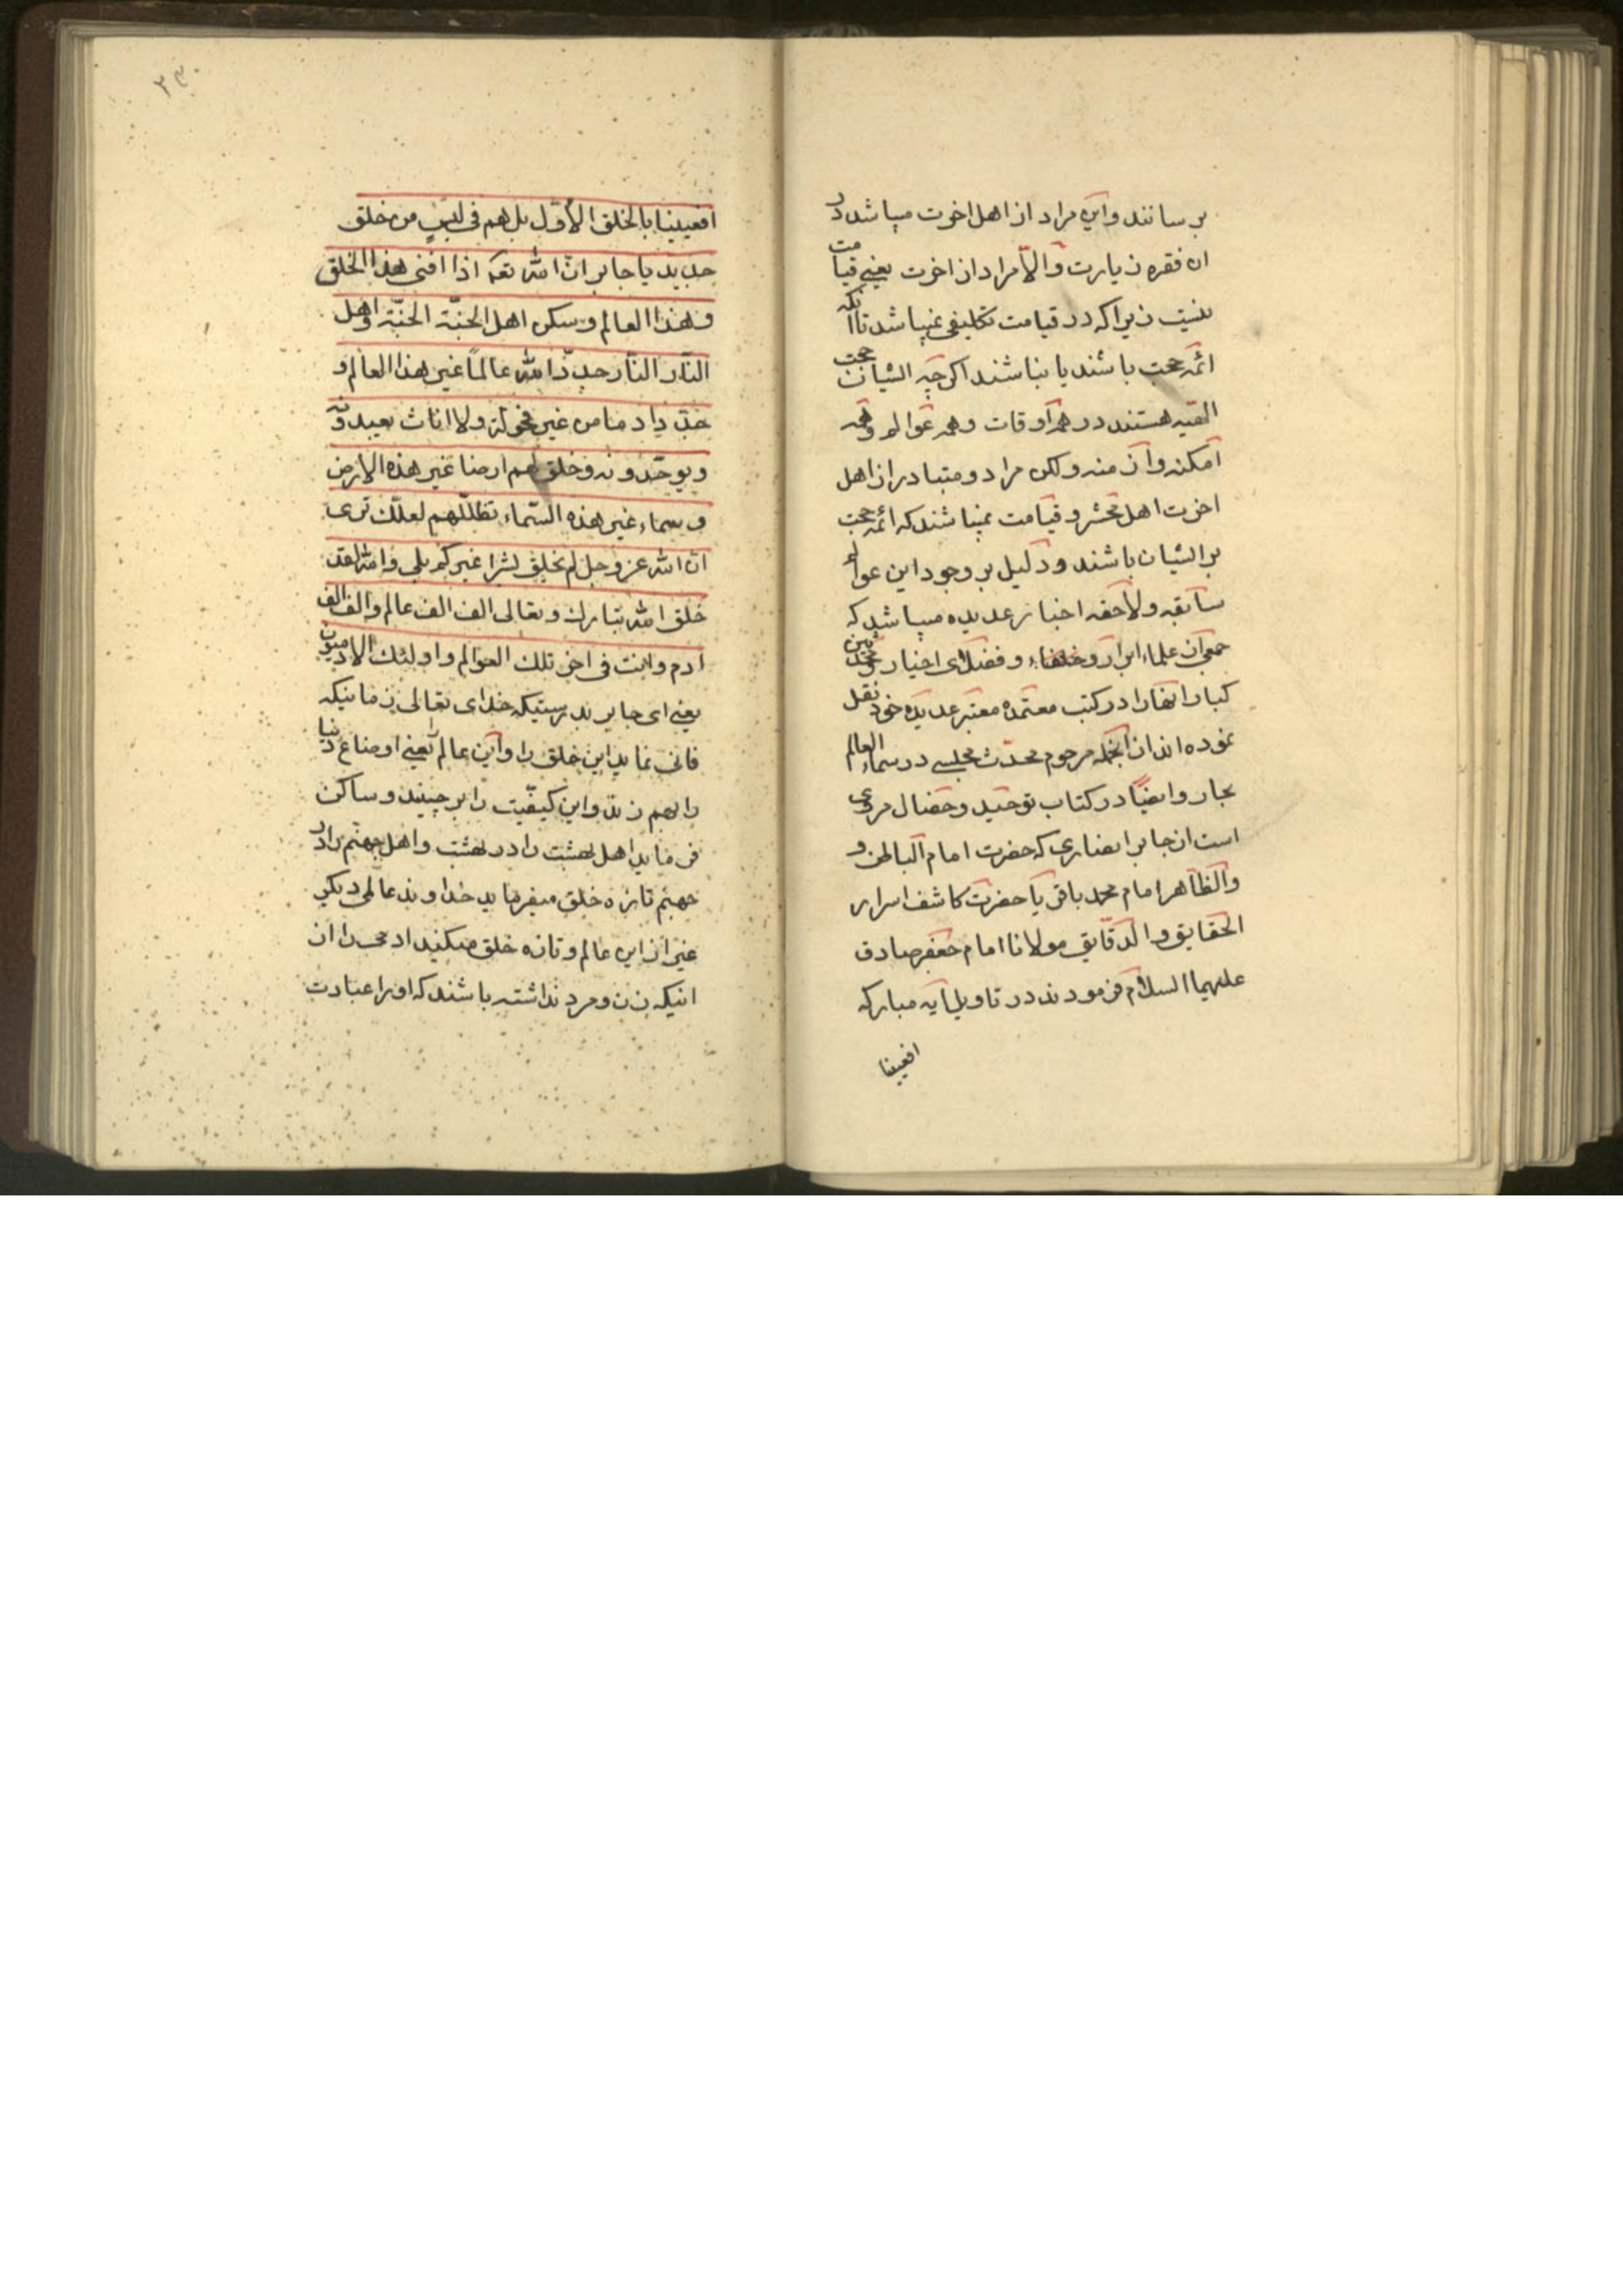 برسانند و این مراد از اهل اخرت میباشد در
ان فقره زیارت و الا مراد از اخرت یعنی قیامت
نیست زیرا که در قیامت تکلیفی نمیباشد تا انکه
ائمه حجت باشند یا نباشند اگرچه ایشان حجت
الله هستند در همه اوقات و همه عوالم و همه
امکنه و ازمنه ولکن مراد و متبادر از اهل
اخرت اهل محشر و قیامت نمیباشند که ائمه حجت
بر ایشان باشند و دلیل بر وجود این عوالم
سابقه و لاحقه اخبار عدیده میباشد که
جمعی از علماء ابرار و خلفاء و فضلای اخیار و محدثین
کبار انها را در کتب معتمده معتبر عدیده خود نقل
نموده اند از انجمله مرحوم محدث مجلسی در سماء العالم
بحار و ایضا در کتاب توحید و خصال مروی
است از جابر انصاری که حضرت امام الباطن و
والظاهر امام محمد باقر یا حضرت کاشف اسرار
الحقایق والدقایق مولانا امام جعفر صادق
علیهما السلام فرمودند در تاویل ایه مبارکه
افعیینا
۲۳۰
افعیینا بالخلق الاول بل هم فی لبس من خلق
جدید یا جابر ان الله تعه اذا افنی هذا الخلق
و هذا العالم و سکن اهل الجنة الجنة و اهل
النار النار جدد الله عالماً غیر هذا العالم و
جدد ادما من غیر فحولة ولا اناث یعبدونه
و یوحدونه و خلق لهم ارضا غیر هذه الارض
و سماء غیر هذه السماء تظللهم لعلک تری
ان الله عز و جل لم یخلق بشرا غیرکم بلی والله لقد
خلق الله تبارک و تعالی الف الف عالم و الف الف
ادم و انت فی اخر تلک العوالم و اولئک الادمیون
یعنی ای جابر بدرستیکه خدای تعالی زمانیکه
فانی نماید این خلق را و این عالم یعنی اوضاع دنیا
را بهم زند و این کیفیت را برچیند و ساکن
فرماید اهل بهشت را در بهشت و اهل جهنم را در
جهنم تازه خلق میفرماید خداوند عالمی دیگر
غیر از این عالم و تازه خلق میکند ادمی را از
انیکه زن و مرد نداشته باشند که او را عبادت